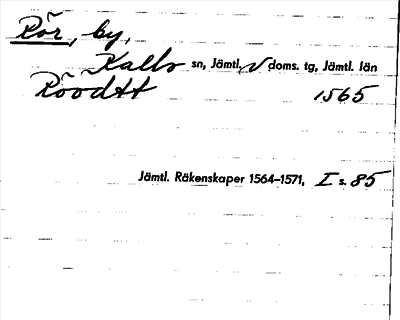 Rör, by,
Kalls sn, Jämtl. v doms. tg, Jämtl. län
Röodtt 1565
Jämtl. Räkenskaper 1564–1571, I s. 85